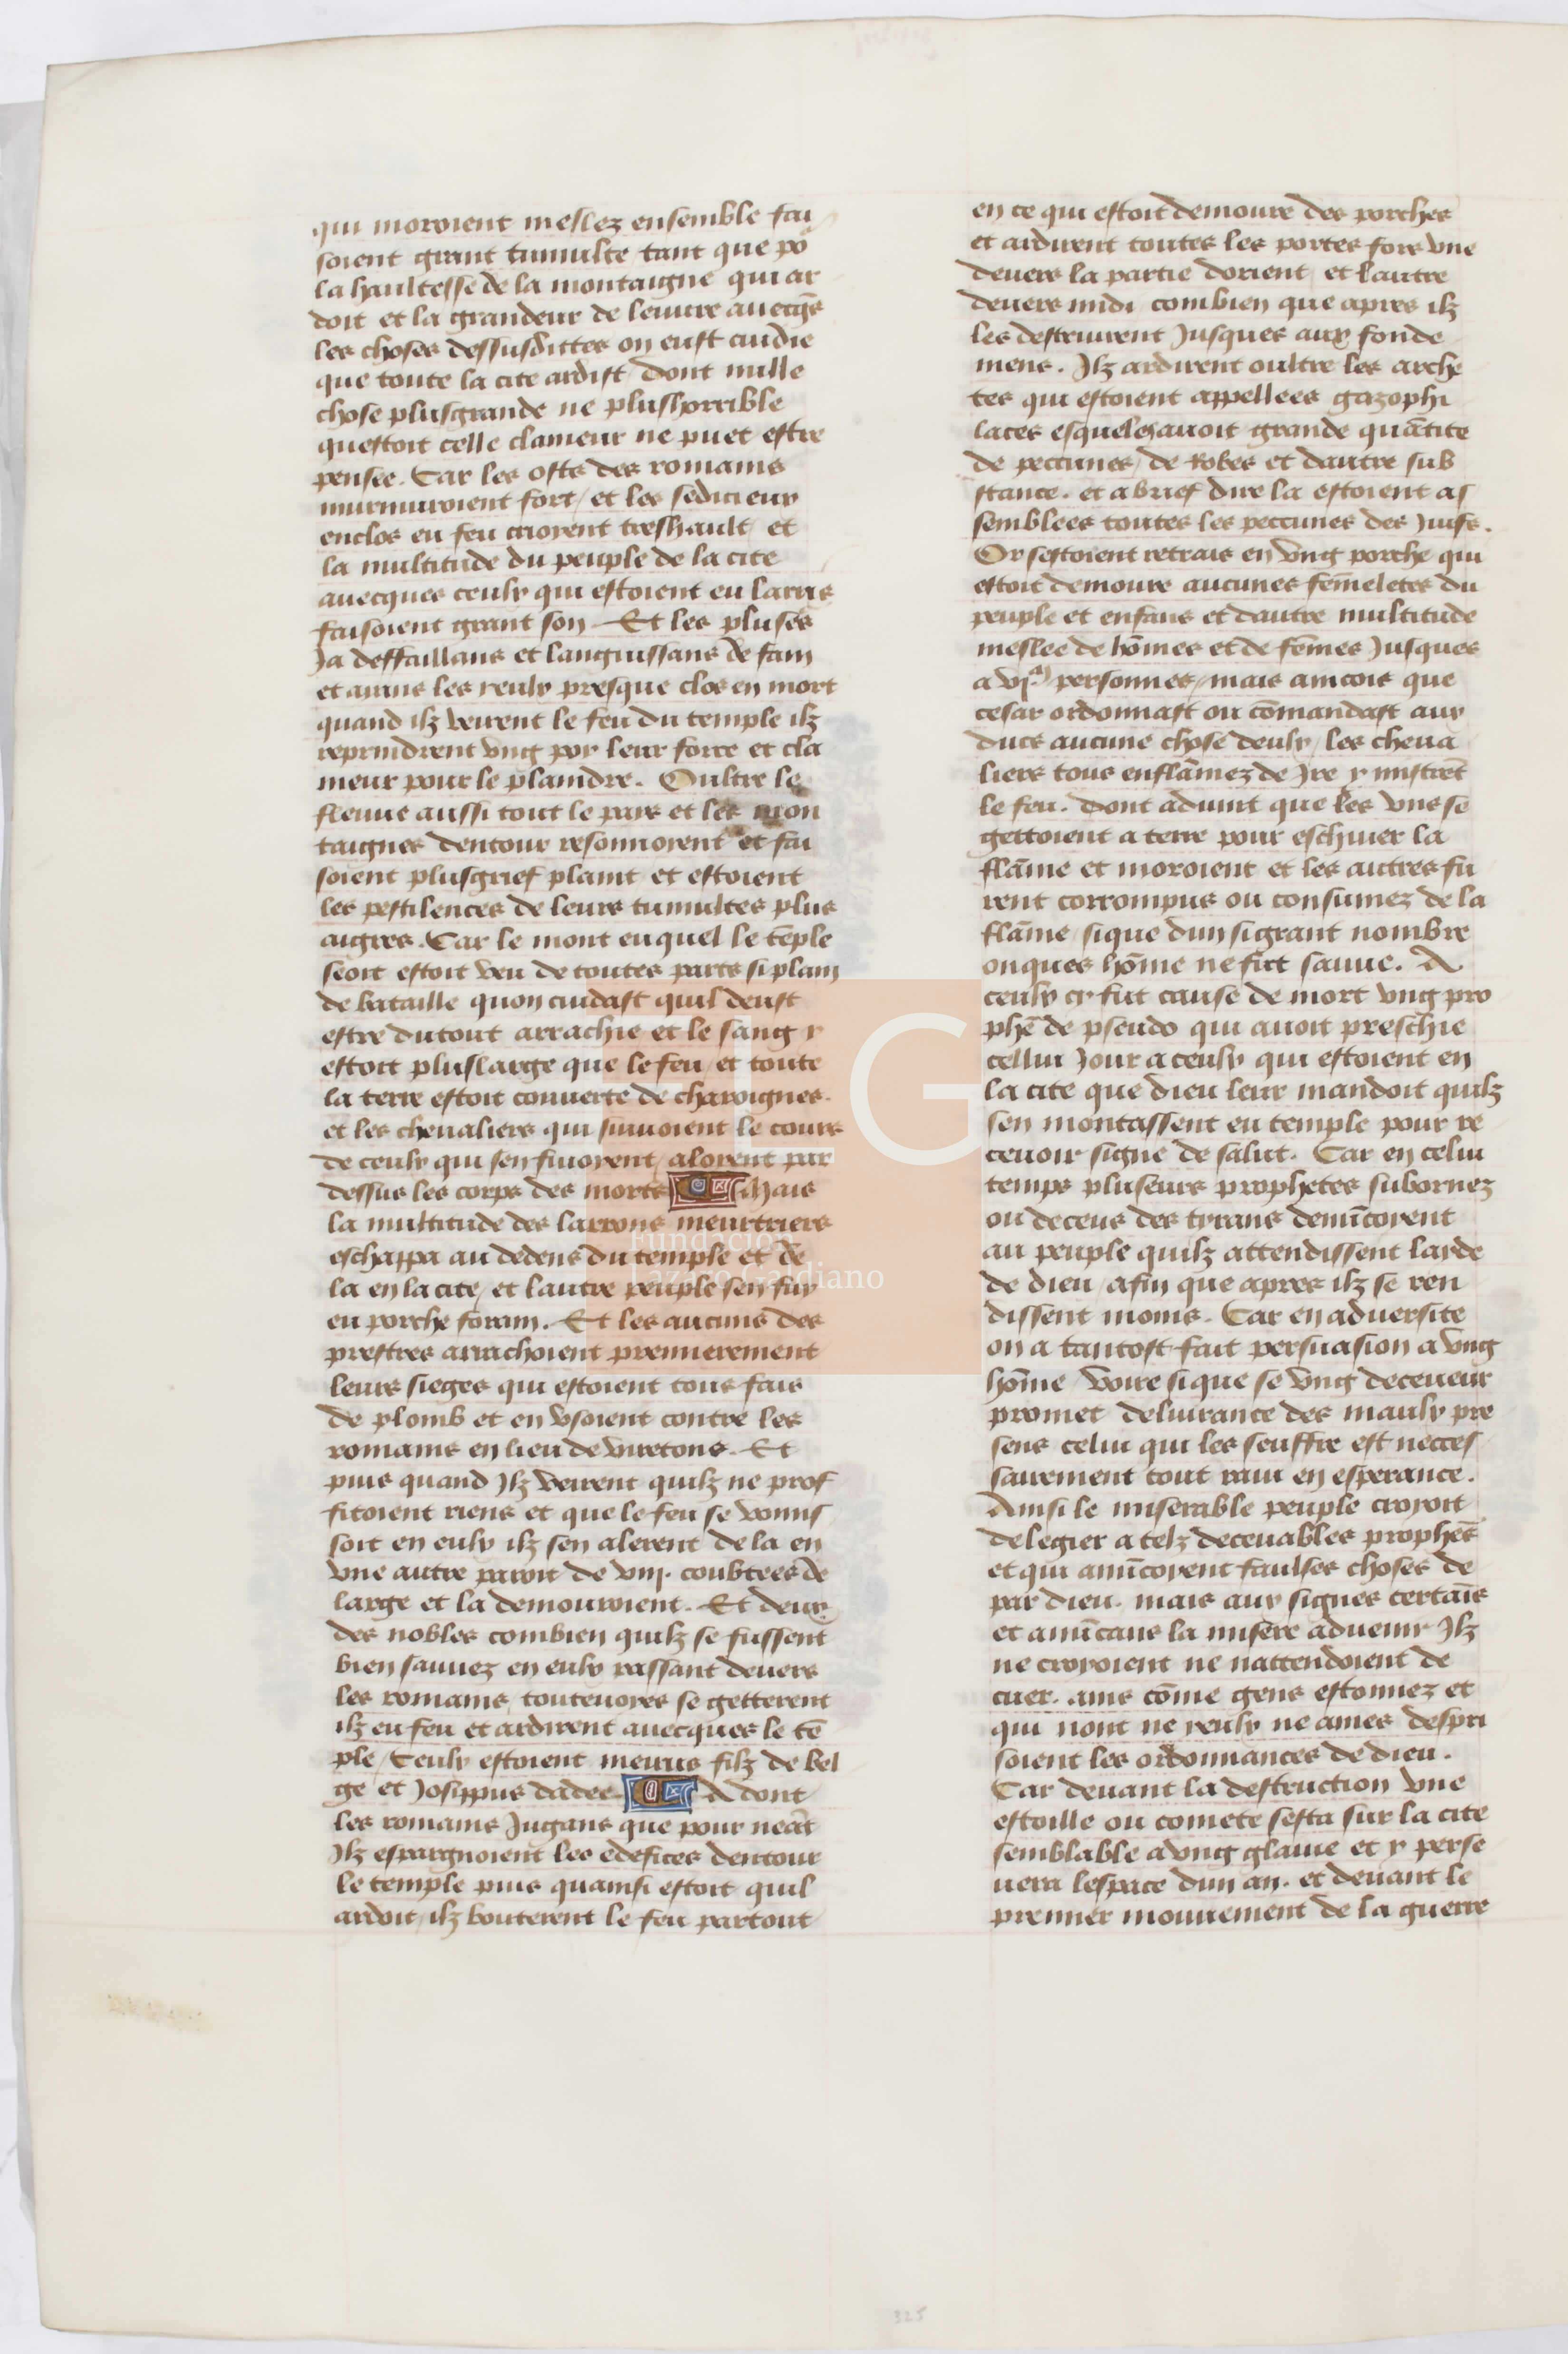 qui moroient meslez ensemble fai
soient grant tumulte tant que po
la haultesse de la montaigne qui ar
doit et la grandeur de leuure auecq̄s
les choses dessusdittes on eust cuidie
que toute la cite ardist dont nulle
chose plusgrande ne plushorrible
questoit celle clameur ne puet estre
pensee. Car les osts des romains
murmuroient fort / et les sedicieux
enclos eu feu crioyent treshault et
la multitude du peuple de la cite
auecques ceulx qui estoient eu larris
faisoient grant son. Et les pluse͛s
Ja deffaillans et languissans de faim
et aians les yeulx presque clos en mort
quand ilz veirent le feu du temple ilz
reprindrent vng por leur force et cla
meur pour le plaindre. Oultre le
fleuue aussi tout le pais et les mon
taignes dentour resonnoient et fai
soient plusgrief plaint et estoient
les pestilences de leurs tumultes plus
aigres. Car le mont euquel le tēple
seoit estoit veu de toutes pars si plain
de bataille quon cuidast quil deust
estre dutout arrachie et le sang y
estoit pluslarge que le feu / et toute
la terre estoit couuerte de charoignes.
et les cheualiers qui suiuoient le cours
de ceulx qui sen fuioyent / aloyent par
dessus les corps des morts Mais
la multitude des larrons meurtriers
eschappa au dedens du temple et de
la en la cite / et lautre peuple sen fuy
eu porche forain. Et les aucuns des
prestres arrachoient premierement
leurs sieges qui estoient tous fais
de plomb et en vsoient contre les
romains en lieu de viretons. Et
puis quand Ilz veirent quilz ne prof
fitoient riens et que le feu se vomis
soit en eulx ilz sen alerent de la en
vne autre paroit de viij. coubtees de
large et la demouroient. Et deux
des nobles combien quilz se fussent
bien sauuez en eulx passant deuers
les romains / toutenoyes se getterent
ilz eu feu et ardirent auecques le tē
ple / Ceulx estoient meirus filz de bel
ge et Josippus dadee A dont
les romains Jugans que pour neāt
Ilz espargnoient les edefices dentour
le temple puis quainsi estoit quil
ardoit / ilz bouterent le feu partout
en ce qui estoit demoure des porches
et ardirent toutes les portes fors vne
deuers la partie dorient et lautre
deuers midi combien que apres ilz
les destruirent Jusques aux fonde
mens. Ilz ardirent oultre les arche
tes qui estoient appellees gazophi
laces esquelez auoit grande quātite
de peccunes / de Robes et dautre sub
stance. et a brief dire la estoient as
semblees toutes les peccunes des Juifs.
Or sestoient retrais en vng porche qui
estoit demoure aucunes fēmeletes du
peuple et enfans et dautre multitude
meslee de hōmes et de fēmes Jusques
a vj.ᵐ personnes / mais aincois que
cesar ordonnast ou cōmandast aux
ducs aucune chose deulx / les cheua
liers tous enflāmez de Jre y mistrēt
le feu. dont aduint que les vns se
gettoient a terre pour eschiuer la
flāme et moroient et les autres fu
rent corrompus ou consumez de la
flāme / sique dun sigrant nombre
onques hōme ne fut sauue. A
ceulx cy fut cause de mort vng pro
phē de pseudo qui auoit preschie
cellui Jour a ceulx qui estoient en
la cite que dieu leur mandoit quilz
sen montassent eu temple pour re
ceuoir signe de salut. Car en celui
temps pluseurs prophetes subornez
ou deceus des tyrans denūcoyent
au peuple quilz attendissent larde
de dieu / afin que apres ilz se ren
dissent moins. Car en aduersite
on a tantost fait persuasion a vng
hōme / voire sique se vng deceueur
promet deliurance des maulx pre
sens celui qui les seuffre est necces
sairement tout raui en esperance.
Ainsi le miserable peuple croyoit
delegier a telz deceuables prophēs
et qui anūcoyent faulses choses de
par dieu. mais aux signes certaīs
et anūcans la misere aduenir Ilz
ne croyoient ne nattendoient de
cuer. ains cōme gens estonnez et
qui nont ne yeulx ne ames despri
soient les ordonnances de dieu.
Car deuant la destruction vne
estoille ou comete sesta sur la cite
semblable a vng glaiue et y perse
uera lespace dun an. et deuant le
premier mouuement de la guerre
FLG
Fundación
Lázaro Galdiano
325